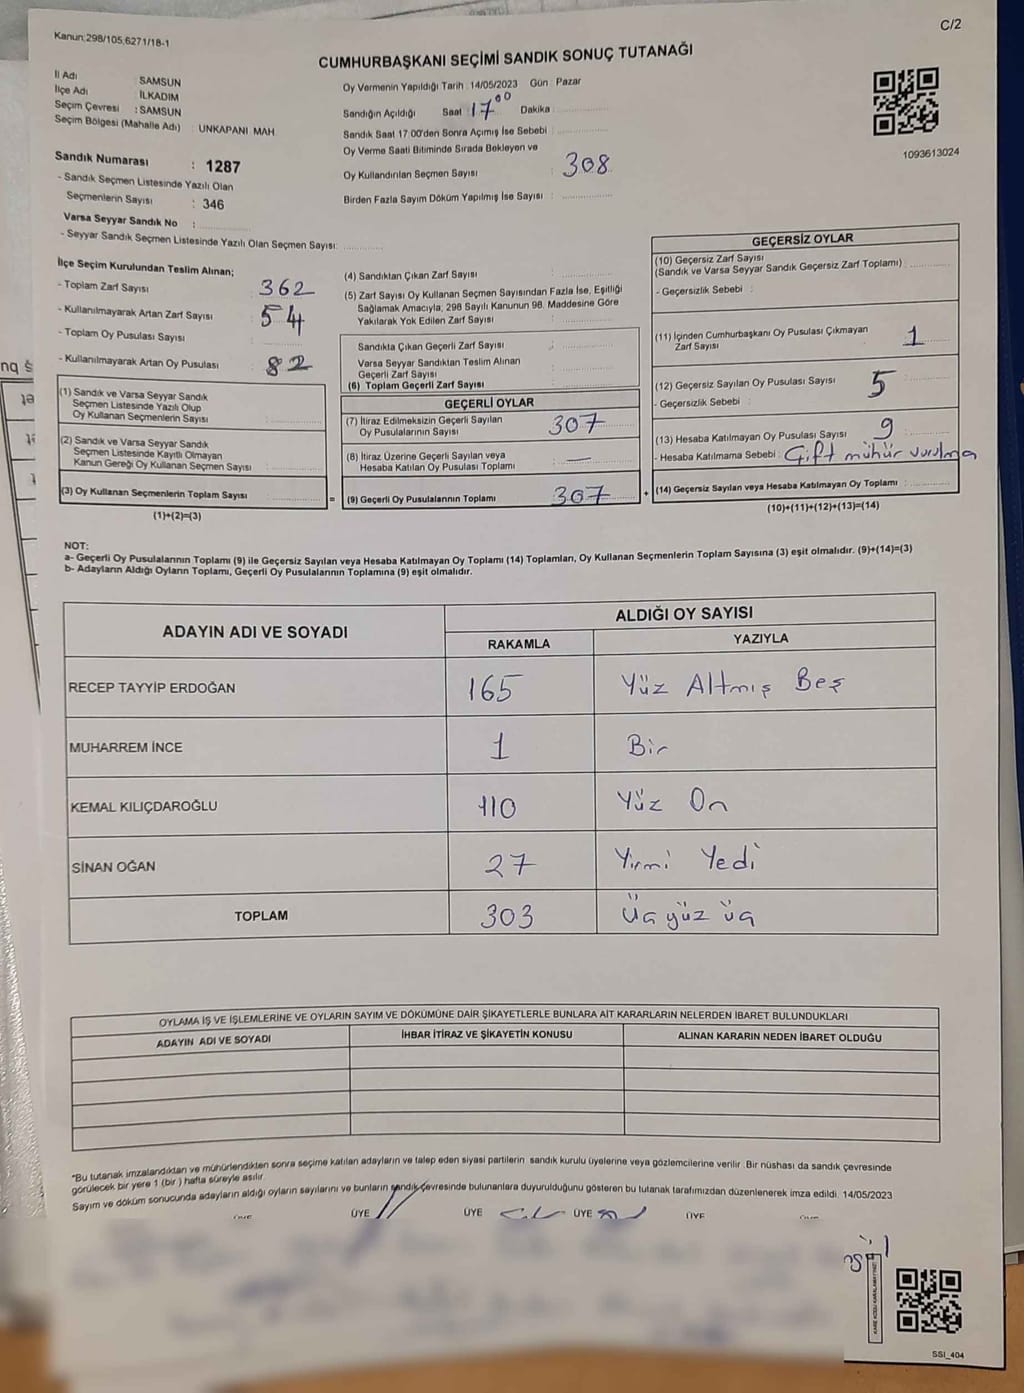 C/2
Kanun;298/105,6271/18-1
CUMHURBAŞKANI SEÇİMİ SANDIK SONUÇ TUTANAĞI
İl Adı : SAMSUN
İlçe Adı : İLKADIM
Seçim Çevresi : SAMSUN
Seçim Bölgesi (Mahalle Adı) : UNKAPANI MAH.
Sandık Numarası : 1287
- Sandık Seçmen Listesinde Yazılı Olan
Seçmenlerin Sayısı : 346
Varsa Seyyar Sandık No :
- Seyyar Sandık Seçmen Listesinde Yazılı Olan Seçmen Sayısı:
Oy Vermenin Yapıldığı Tarih : 14/05/2023 Gün : Pazar
Sandığın Açıldığı Saat : 17 00 Dakika :
Sandık Saat 17.00'den Sonra Açımış İse Sebebi :
Oy Verme Saati Bitiminde Sırada Bekleyen ve
Oy Kullandırılan Seçmen Sayısı : 308
Birden Fazla Sayım Döküm Yapılmış İse Sayısı :
1093613024
İlçe Seçim Kurulundan Teslim Alınan;
- Toplam Zarf Sayısı : 362
- Kullanılmayarak Artan Zarf Sayısı : 54
- Toplam Oy Pusulası Sayısı :
- Kullanılmayarak Artan Oy Pusulası : 82
(1) Sandık ve Varsa Seyyar Sandık
Seçmen Listesinde Yazılı Olup
Oy Kullanan Seçmenlerin Sayısı :
(2) Sandık ve Varsa Seyyar Sandık
Seçmen Listesinde Kayıtlı Olmayan
Kanun Gereği Oy Kullanan Seçmen Sayısı :
(3) Oy Kullanan Seçmenlerin Toplam Sayısı :
(1)+(2)=(3)
(4) Sandıktan Çıkan Zarf Sayısı :
(5) Zarf Sayısı Oy Kullanan Seçmen Sayısından Fazla İse, Eşitliği
Sağlamak Amacıyla; 298 Sayılı Kanunun 98. Maddesine Göre
Yakılarak Yok Edilen Zarf Sayısı :
Sandıkta Çıkan Geçerli Zarf Sayısı :
Varsa Seyyar Sandıktan Teslim Alınan
Geçerli Zarf Sayısı :
(6) Toplam Geçerli Zarf Sayısı :
=
GEÇERLİ OYLAR
(7) İtiraz Edilmeksizin Geçerli Sayılan
Oy Pusulalarının Sayısı : 307
(8) İtiraz Üzerine Geçerli Sayılan veya
Hesaba Katılan Oy Pusulası Toplamı : —
(9) Geçerli Oy Pusulalarının Toplamı : 307
+
GEÇERSİZ OYLAR
(10) Geçersiz Zarf Sayısı
(Sandık ve Varsa Seyyar Sandık Geçersiz Zarf Toplamı) :
- Geçersizlik Sebebi :
(11) İçinden Cumhurbaşkanı Oy Pusulası Çıkmayan
Zarf Sayısı : 1
(12) Geçersiz Sayılan Oy Pusulası Sayısı : 5
- Geçersizlik Sebebi :
(13) Hesaba Katılmayan Oy Pusulası Sayısı : 9
- Hesaba Katılmama Sebebi : Çift mühür vurulma
(14) Geçersiz Sayılan veya Hesaba Katılmayan Oy Toplamı :
(10)+(11)+(12)+(13)=(14)
NOT:
a- Geçerli Oy Pusulalarının Toplamı (9) ile Geçersiz Sayılan veya Hesaba Katılmayan Oy Toplamı (14) Toplamları, Oy Kullanan Seçmenlerin Toplam Sayısına (3) eşit olmalıdır. (9)+(14)=(3)
b- Adayların Aldığı Oyların Toplamı, Geçerli Oy Pusulalarının Toplamına (9) eşit olmalıdır.
ADAYIN ADI VE SOYADI
ALDIĞI OY SAYISI
RAKAMLA YAZIYLA
RECEP TAYYİP ERDOĞAN 165 Yüz Altmış Beş
MUHARREM İNCE 1 Bir
KEMAL KILIÇDAROĞLU 110 Yüz On
SİNAN OĞAN 27 Yirmi Yedi
TOPLAM 303 Üç yüz üç
OYLAMA İŞ VE İŞLEMLERİNE VE OYLARIN SAYIM VE DÖKÜMÜNE DAİR ŞİKAYETLERLE BUNLARA AİT KARARLARIN NELERDEN İBARET BULUNDUKLARI
ADAYIN ADI VE SOYADI İHBAR İTİRAZ VE ŞİKAYETİN KONUSU ALINAN KARARIN NEDEN İBARET OLDUĞU
"Bu tutanak imzalandıktan ve mühürlendikten sonra seçime katılan adayların ve talep eden siyasi partilerin sandık kurulu üyelerine veya gözlemcilerine verilir. Bir nüshası da sandık çevresinde
görülecek bir yere 1 (bir ) hafta süreyle asılır.
Sayım ve döküm sonucunda adayların aldığı oyların sayılarını ve bunların sandık çevresinde bulunanlara duyurulduğunu gösteren bu tutanak tarafımızdan düzenlenerek imza edildi. 14/05/2023
ÜYE ÜYE ÜYE ÜYE
SSI_404